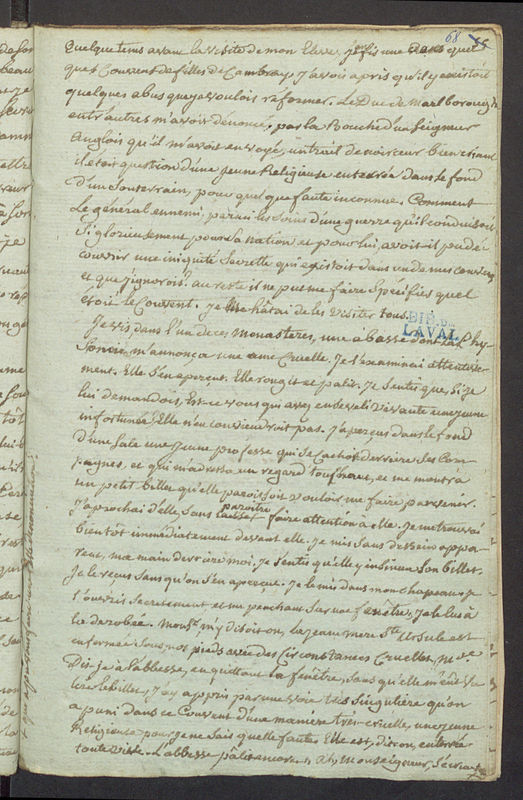 68 55
Quelque tems avant la visite de mon Eleve, j'en fis une dans quel
ques Couvent de filles de Cambray. J'avois apris qu'il y existoit
quelques abus que je voulois réformer. Le Duc de Marlborough
entr'autres m'avoit dénoncé, par la Bouche d'un Seigneur
Anglois qu'il m'avoit envoyé, un trait de noirceur bien
il etoit question d'une jeune Religieuse enterrée dans le fond
d'un Souterrain, pour quelque faute inconnue. Comment
Le général ennemi, parmi les Soins d'une guerre qu'il conduisoit
Si glorieusement pour Sa nation et pour lui, avoit-il pu dé-
couvrir une iniquité Secrette qui existoit dans un de mes couvens
et que j'ignorois? au reste il ne put me faire Spécifier quel
étoit le Couvent. Je me hâtai de les visiter tous.
Je vis, dans l'un de ces Monasteres, une abesse dont la Phy-
Sionomie m'annonça une ame Cruelle. Je l'examinai attentive-
ment. Elle S'en aperçut. Elle rougit et palit. Je Sentis que, Si je
lui demandois, Est-ce vous qui avez enseveli vivante une jeune
infortunée? Elle n'en conviendroit pas. J'aperçus dans le fond
d'une Sale une jeune professe qui Se cachoit derriere Ses Com-
pagnes, et qui m'adressa un regard touchant, et me montra
un petit billet qu'elle paroissoit vouloir me faire parvenir.
J'aprochai d'elle, Sans paroitre faire attention à elle. Je me trouvai
bientôt immédiatement devant elle. Je mis Sans dessein appa-
rent, ma main derriere moi. Je Sentis qu'elle y insinua Son billet.
Je le reçus Sans qu'on S'en aperçut. Je le mis dans mon chapeau, je
l'ouvris Secretement, et me penchant Sur une fenêtre, Je le lus à
la derobée. Monsgr. m'y disoit on, la jeune mere Ste. Ursule est
enfermée Sous nos pieds avec des Circonstances Cruelles. Mde.
Dis-je à l'abbesse, en quittant la fenêtre, Sans qu'elle m'eut vu
lire le billet, j'ay appris par une voie très Singuliere qu'on
a puni dans ce Couvent d'une maniere très-cruelle, une jeune
Religieuse pour je ne Sais quelle faute. Elle est, dit on, enterrée
toute vive. L'abbesse pâlit encore. ah, Monseigneur, S'écria
BIB. DE
LAVAL